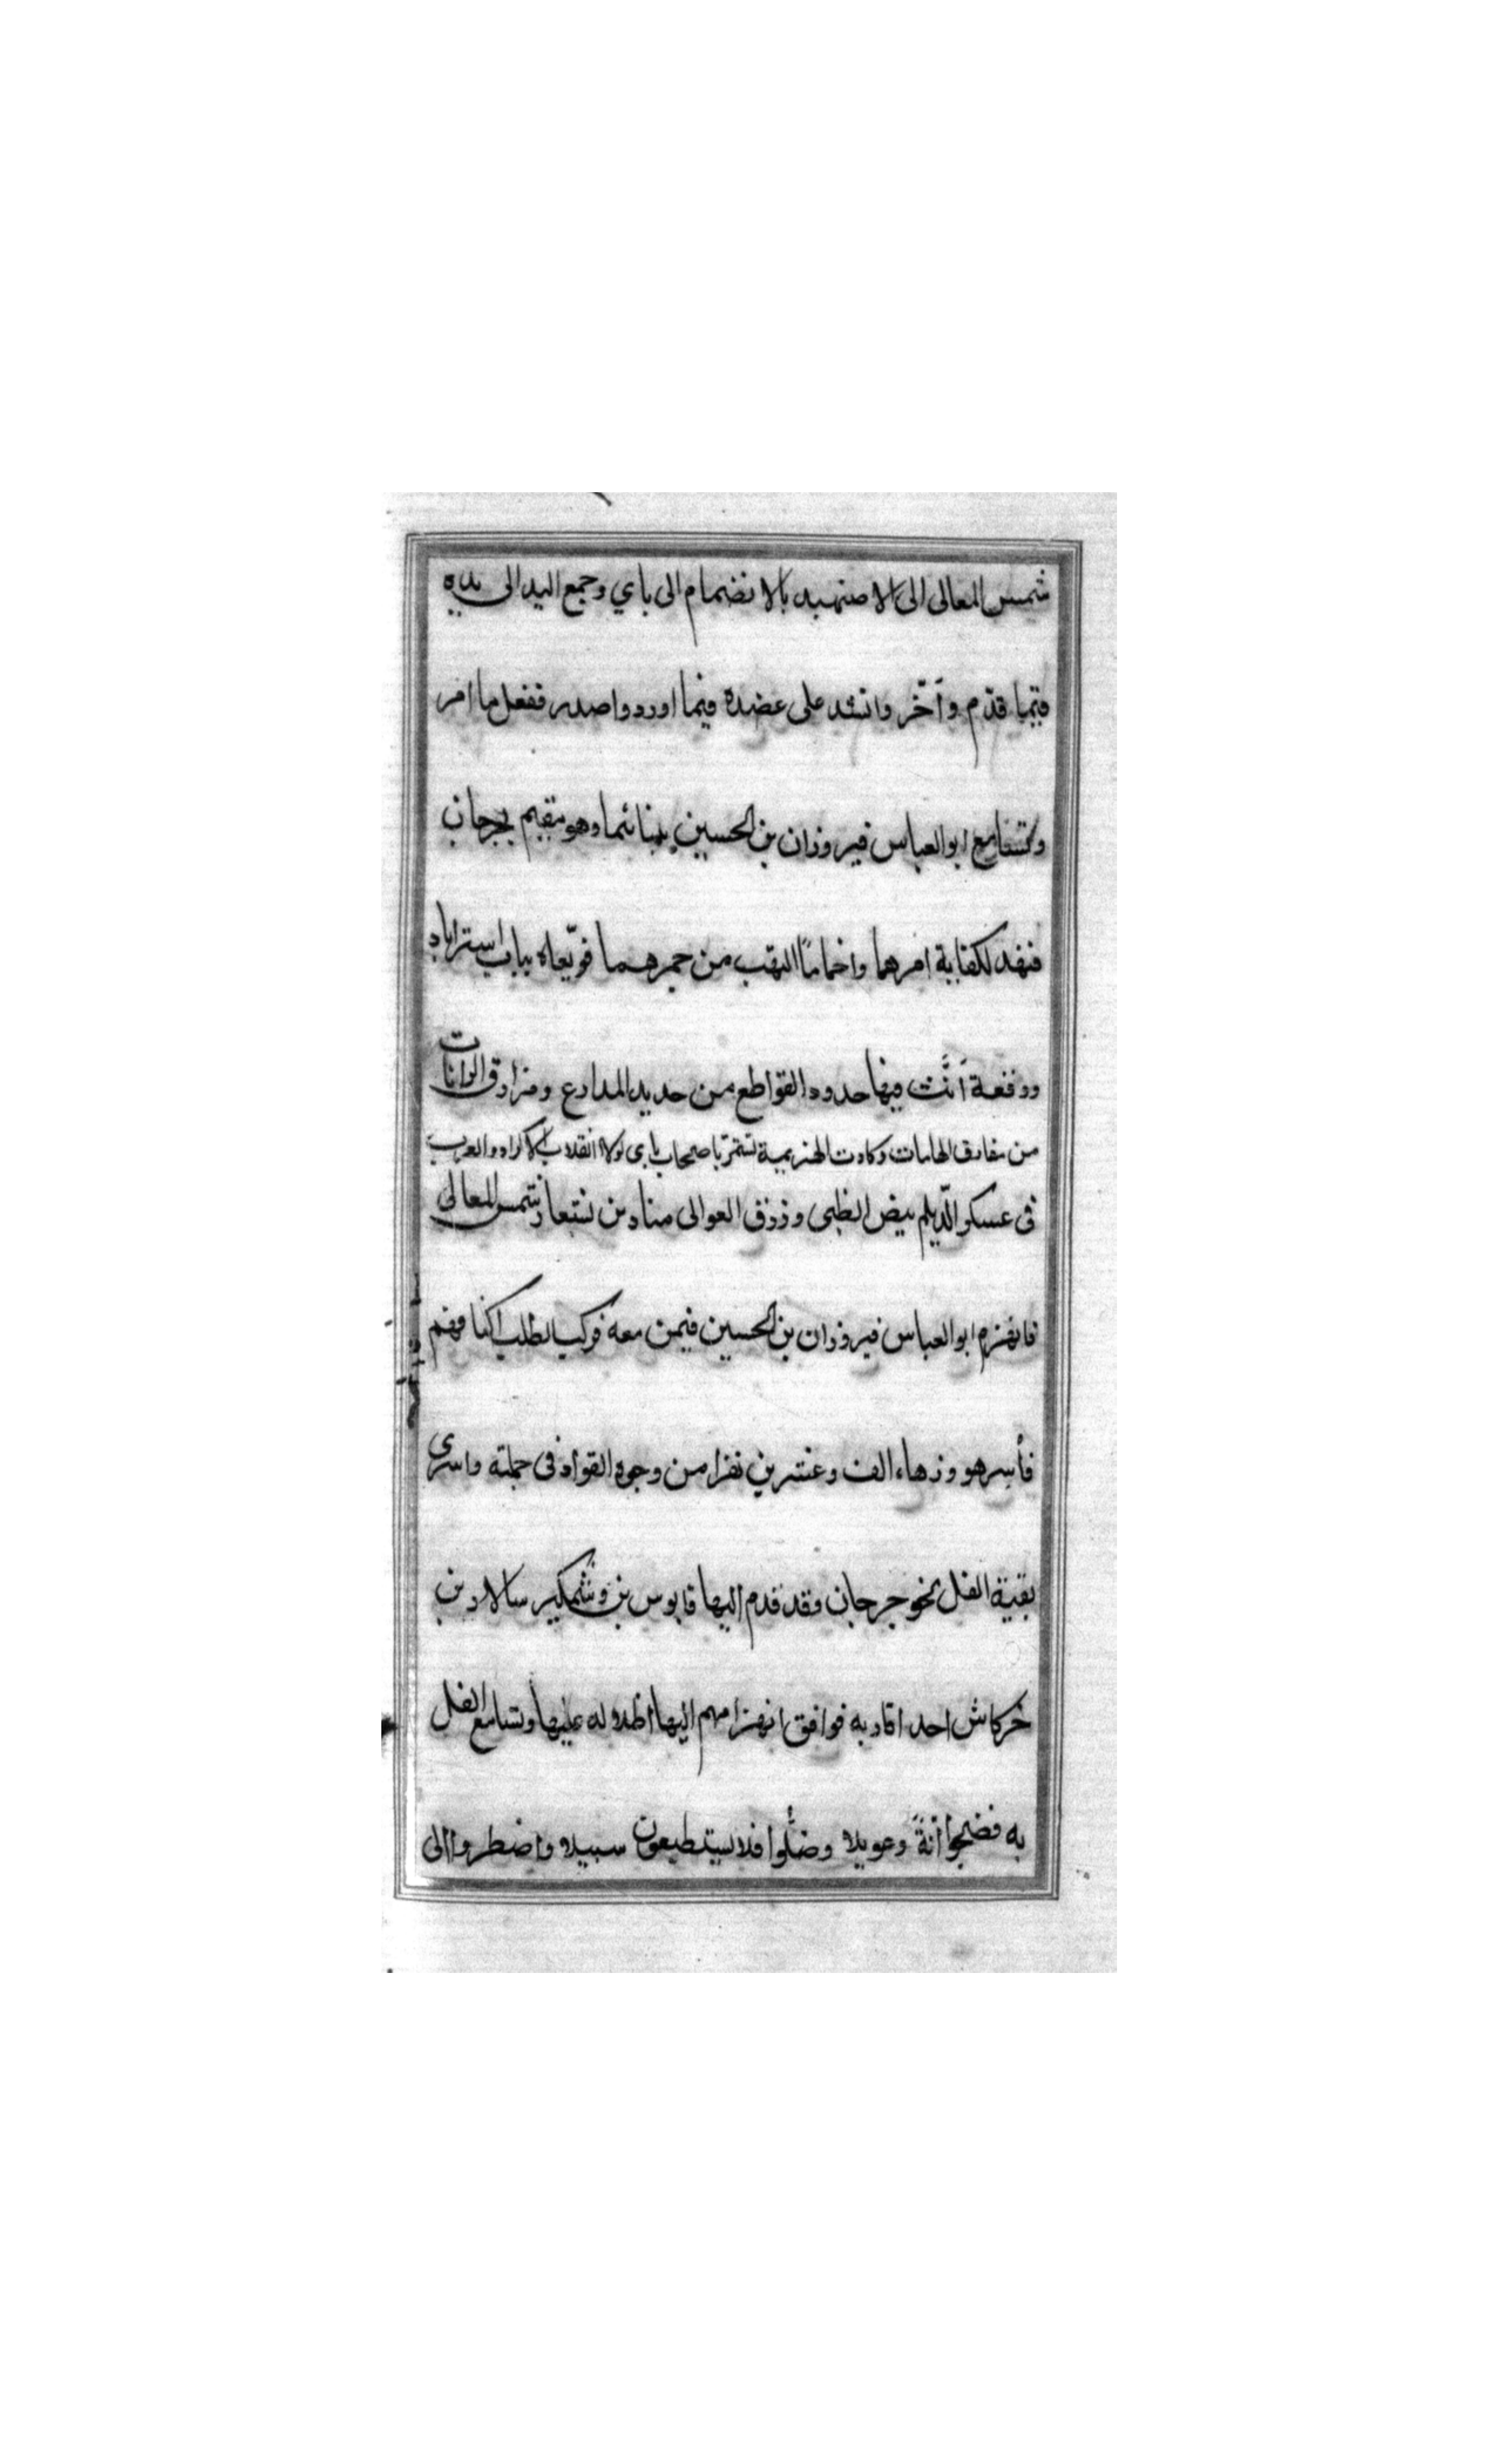 شمس المعالى الى الاصبهبد بالانضمام الى باي وجمع اليد الى يده
فيما قدّم وأخّر وانشد على عضده فيما اورد واصدر ففعل ما امر
وتسامع ابو العباس فيروزان بن الحسين بنبائهما وهو مقيم بجرجان
فنفد لكفاية امرهما واخمامًا اللهب من جمرهما فوقعا به بباب استراباد
ووقعة أنّت فيها حدود القواطع من حديد المدارع ومزارق الرانات
من مفارق الهامات وكادت الهزيمة تستمر باصحاب باى لولا انقلاب الاكراد والعرب
فى عسكر الدّيلم ببيض الظبى وزرق العوالى منادين بشعار شمس المعالى
فانهزم ابو العباس فيروزان بن الحسين فيمن معه فركب بطلب اكتافهم
فأسر هو وزهاء الف وعشرين نفرا من وجوه القواد فى جملته واسرى
بقية الفل نحو جرجان وقد قدم اليها قابوس بن وشمكير سالار بن
خركاش احد اقاربه فوافق انهزامهم اليها اظلاله عليها وتسامع الفل
به فضجوا أنةً وعويلا وضلّوا فلا يستطيعون سبيلا واضطروا الى